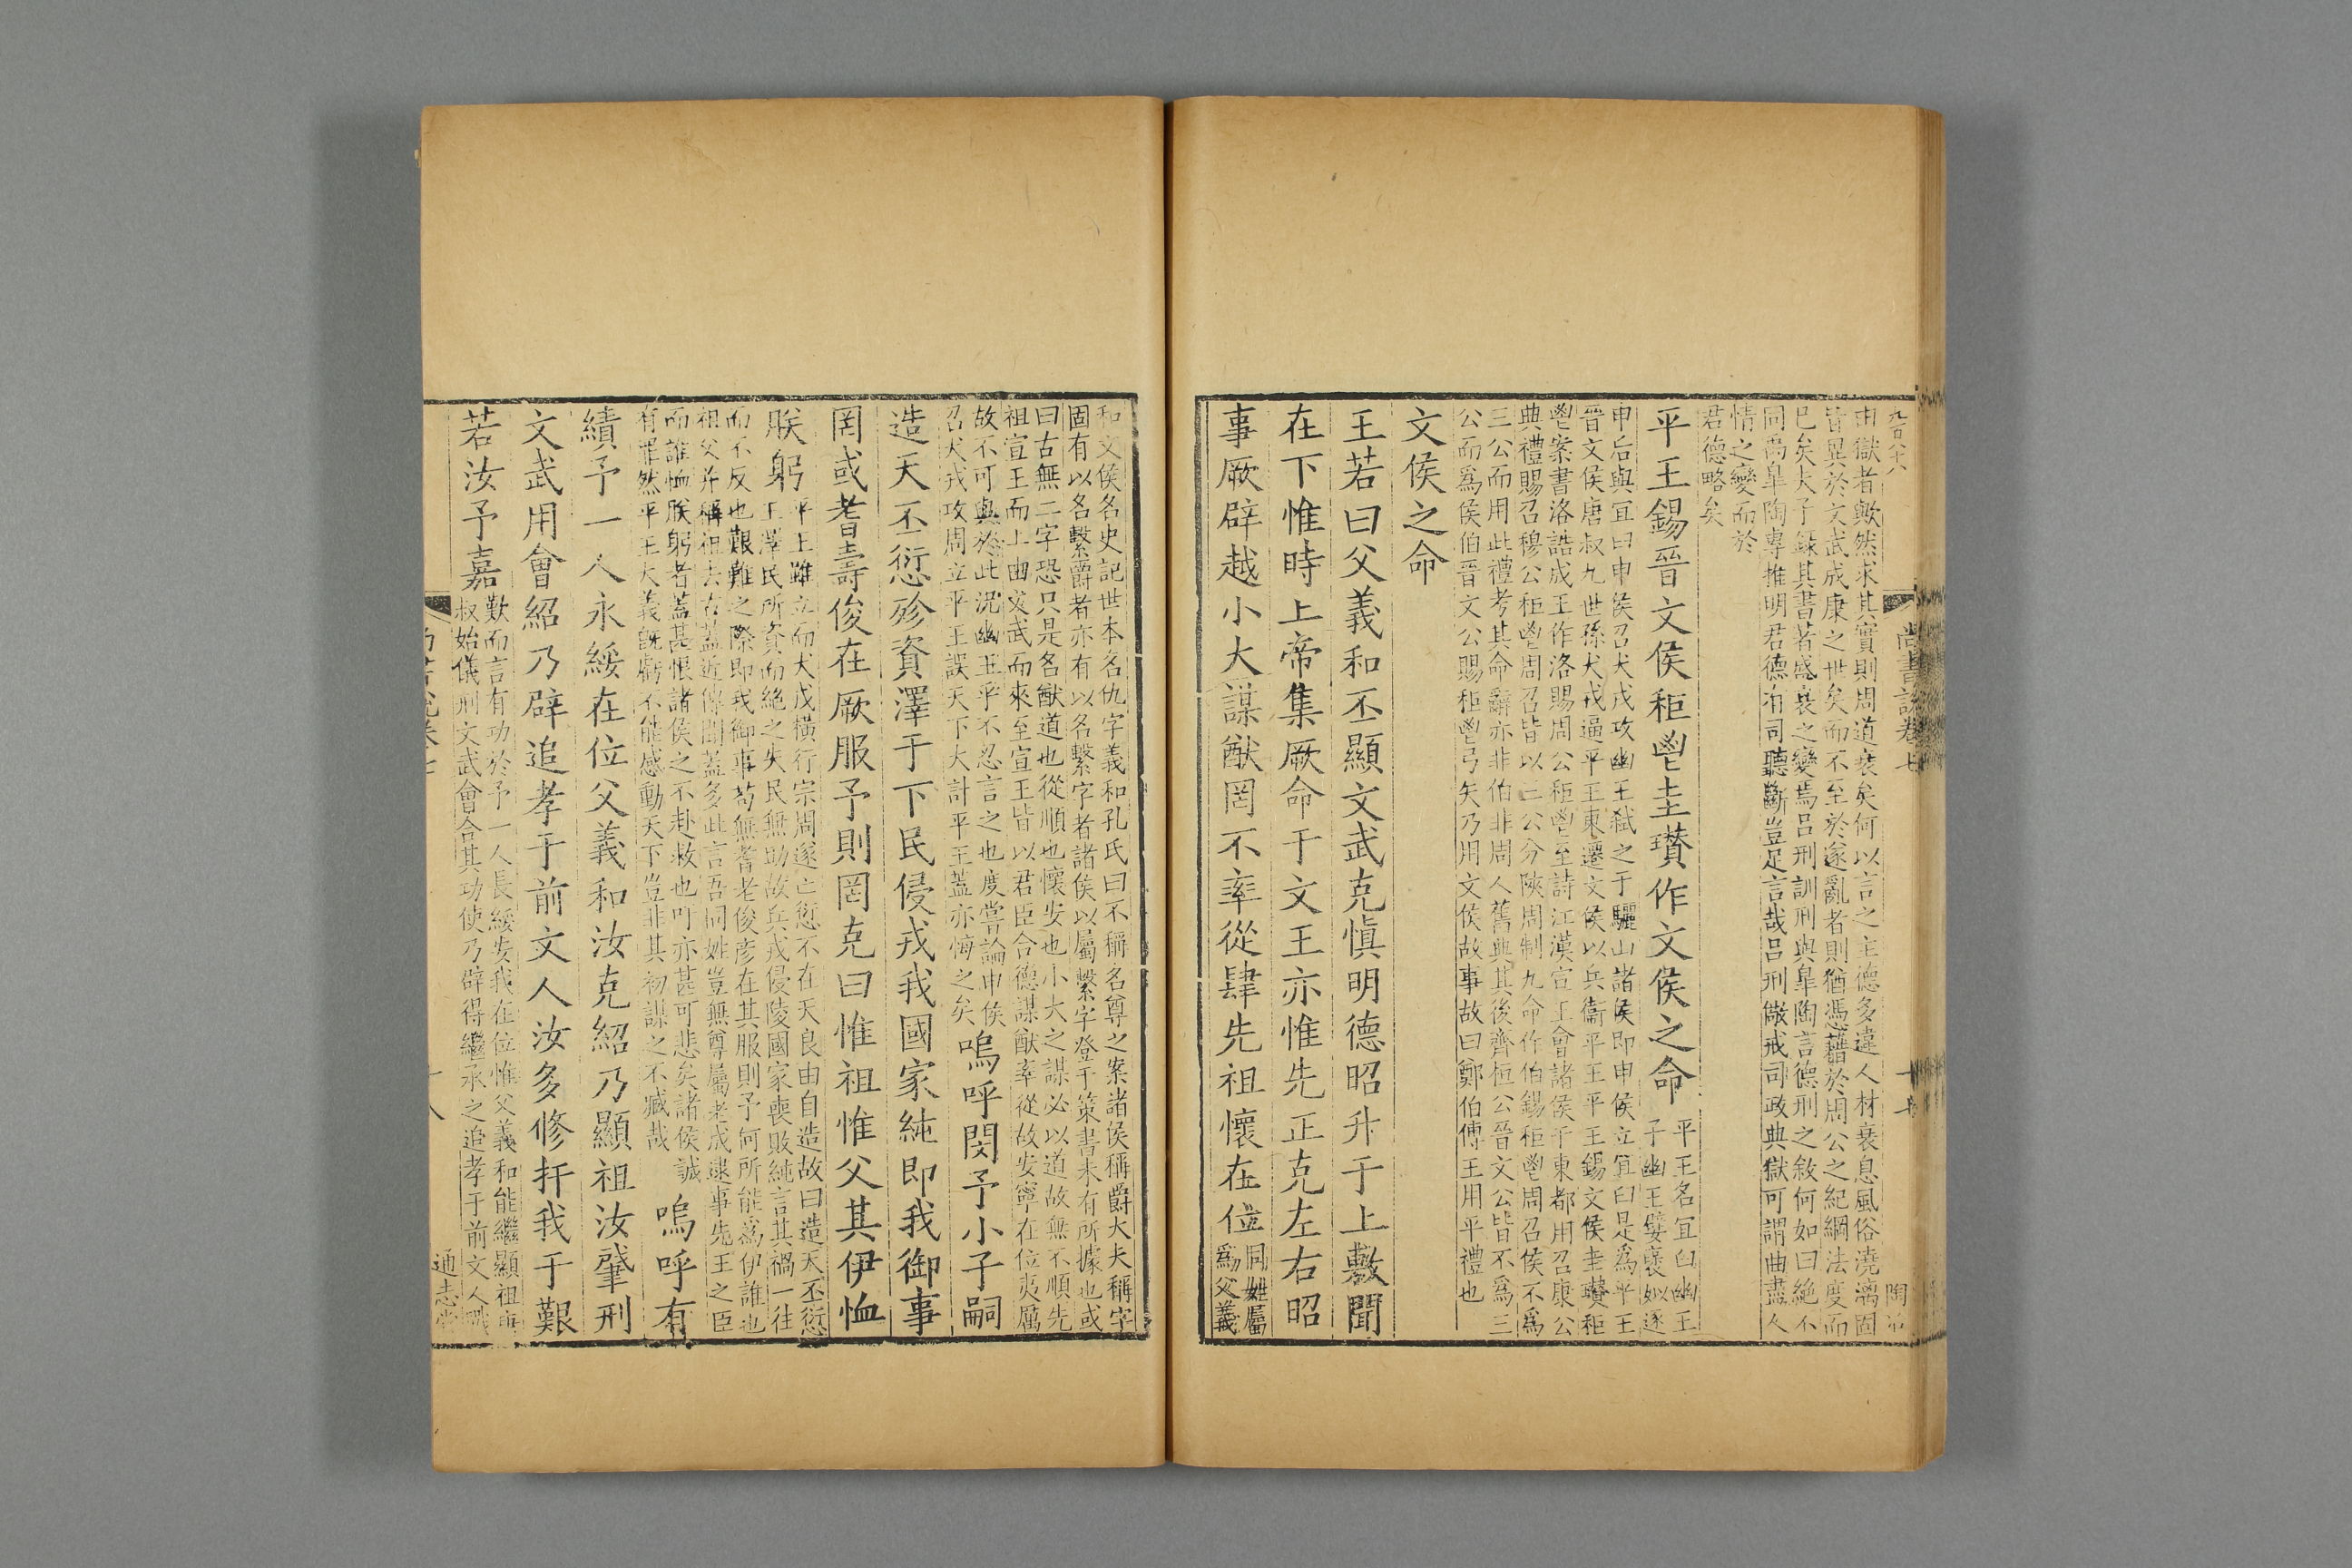 九百八十六
由獄者歟然求其實則周道衰矣何以言之主德多違人材衰息風俗澆漓固
皆異於文武成康之世矣而不至於遂亂者則猶馮藉於周公之紀綱法度而
已矣夫子錄其書著盛衰之變焉呂刑訓刑與臯陶言德刑之敘何如曰絶不
同爲臯陶專推明君德有司聽斷豈足言哉呂刑儆戒司政典獄可謂曲盡人
情之變而於
君德略矣
平王錫晉文侯秬鬯圭瓚作文侯之命
平王名宜臼幽王
子幽王嬖襃姒逐
申后與宜臼申侯召犬戎攻幽王弑之于驪山諸侯即申侯立宜臼是爲平王
晉文侯唐叔九世孫犬戎逼平王東遷文侯以兵衞平王平王錫文侯圭瓚秬
鬯案書洛誥成王作洛賜周公秬鬯至詩江漢宣王會諸侯于東都用召康公
典禮賜召穆公秬鬯周召皆以三公分陝周制九命作伯錫秬鬯周召侯不爲
三公而用此禮考其命辭亦非伯非周人舊典其後齊恒公晉文公皆不爲三
公而爲侯伯晉文公賜秬鬯弓矢乃用文侯故事故曰鄭伯傅王用平禮也
文侯之命
王若曰父義和丕顯文武克愼明德昭升于上敷聞
在下惟時上帝集厥命于文王亦惟先正克左右昭
事厥辟越小大謀猷罔不率從肆先祖懷在位
同姓屬
爲父義
和文侯名史記世本名仇字義和孔氏曰不稱名尊之案諸侯稱爵大夫稱字
固有以名繫爵者亦有以名繫字者諸侯以屬繫字登于策書未有所據也或
曰古無二字恐只是名猷道也從順也懷安也小大之謀必以道故無不順先
祖宣王而上由文武而來至宣王皆以君臣合德謀猷率從故安寧在位夷厲
故不可與於此況幽王乎不忍言之也度嘗論申侯
召犬戎攻周立平王誤天下大計平王蓋亦悔之矣
嗚呼閔予小子嗣
造天丕愆殄資澤于下民侵戎我國家純即我御事
罔或耆壽俊在厥服予則罔克曰惟祖惟父其伊恤
朕躬
平王雖立而犬戎橫行宗周遂亡愆不在天良由自造故曰造天丕愆
王澤民所資而絶之失民無助故兵戎侵陵國家喪敗純言其禍一往
而不反也艱難之際即我御事茍無耆老俊彦在其服則予何所能爲伊誰也
祖父并稱祖去古蓋近傳聞蓋多此言吾同姓豈無尊屬老成逮事先王之臣
而誰恤朕躬者蓋甚恨諸侯之不赴救也吁亦甚可悲矣諸侯誠
有罪然平王大義旣虧不能感動天下豈非其初謀之不臧哉
嗚呼有
績予一人永綏在位父義和汝克紹乃顯祖汝肇刑
文武用會紹乃辟追孝于前文人汝多修扞我于艱
若汝予嘉
歎而言有功於予一人長綏安我在位惟父義和能繼顯祖
叔始儀刑文武會合其功使乃辟得繼承之追孝于前文人
尚書說卷七
十七
十八
通志堂